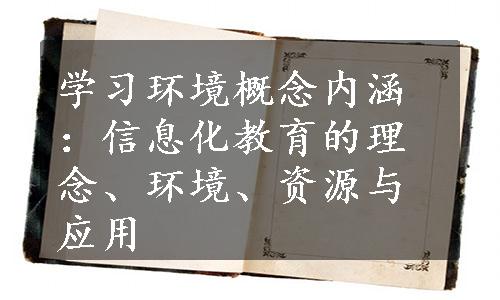 学习环境概念内涵
：信息化教育的理
念、环境、资源与
应用